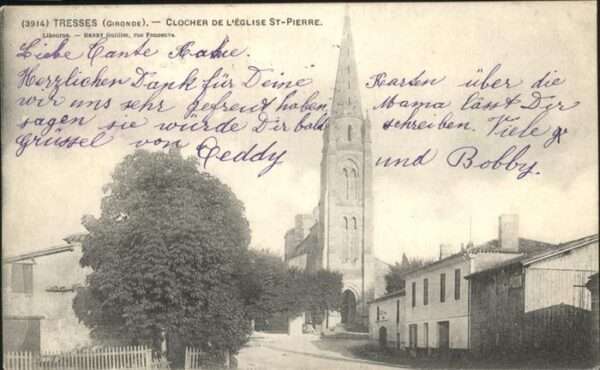 (3914) TRESSES (GIRONDE). — CLOCHER DE L'ÉGLISE ST-PIERRE.
Libourne. — HENRY Guillier, rue Fonneuve.
Liebe Tante Katie.
Herzlichen Dank für Deine Karten über die
wir uns sehr gefreut haben, Mama lässt Dir
sagen sie würde Dir bald schreiben. Viele
Grüssel von Teddy und Bobby.